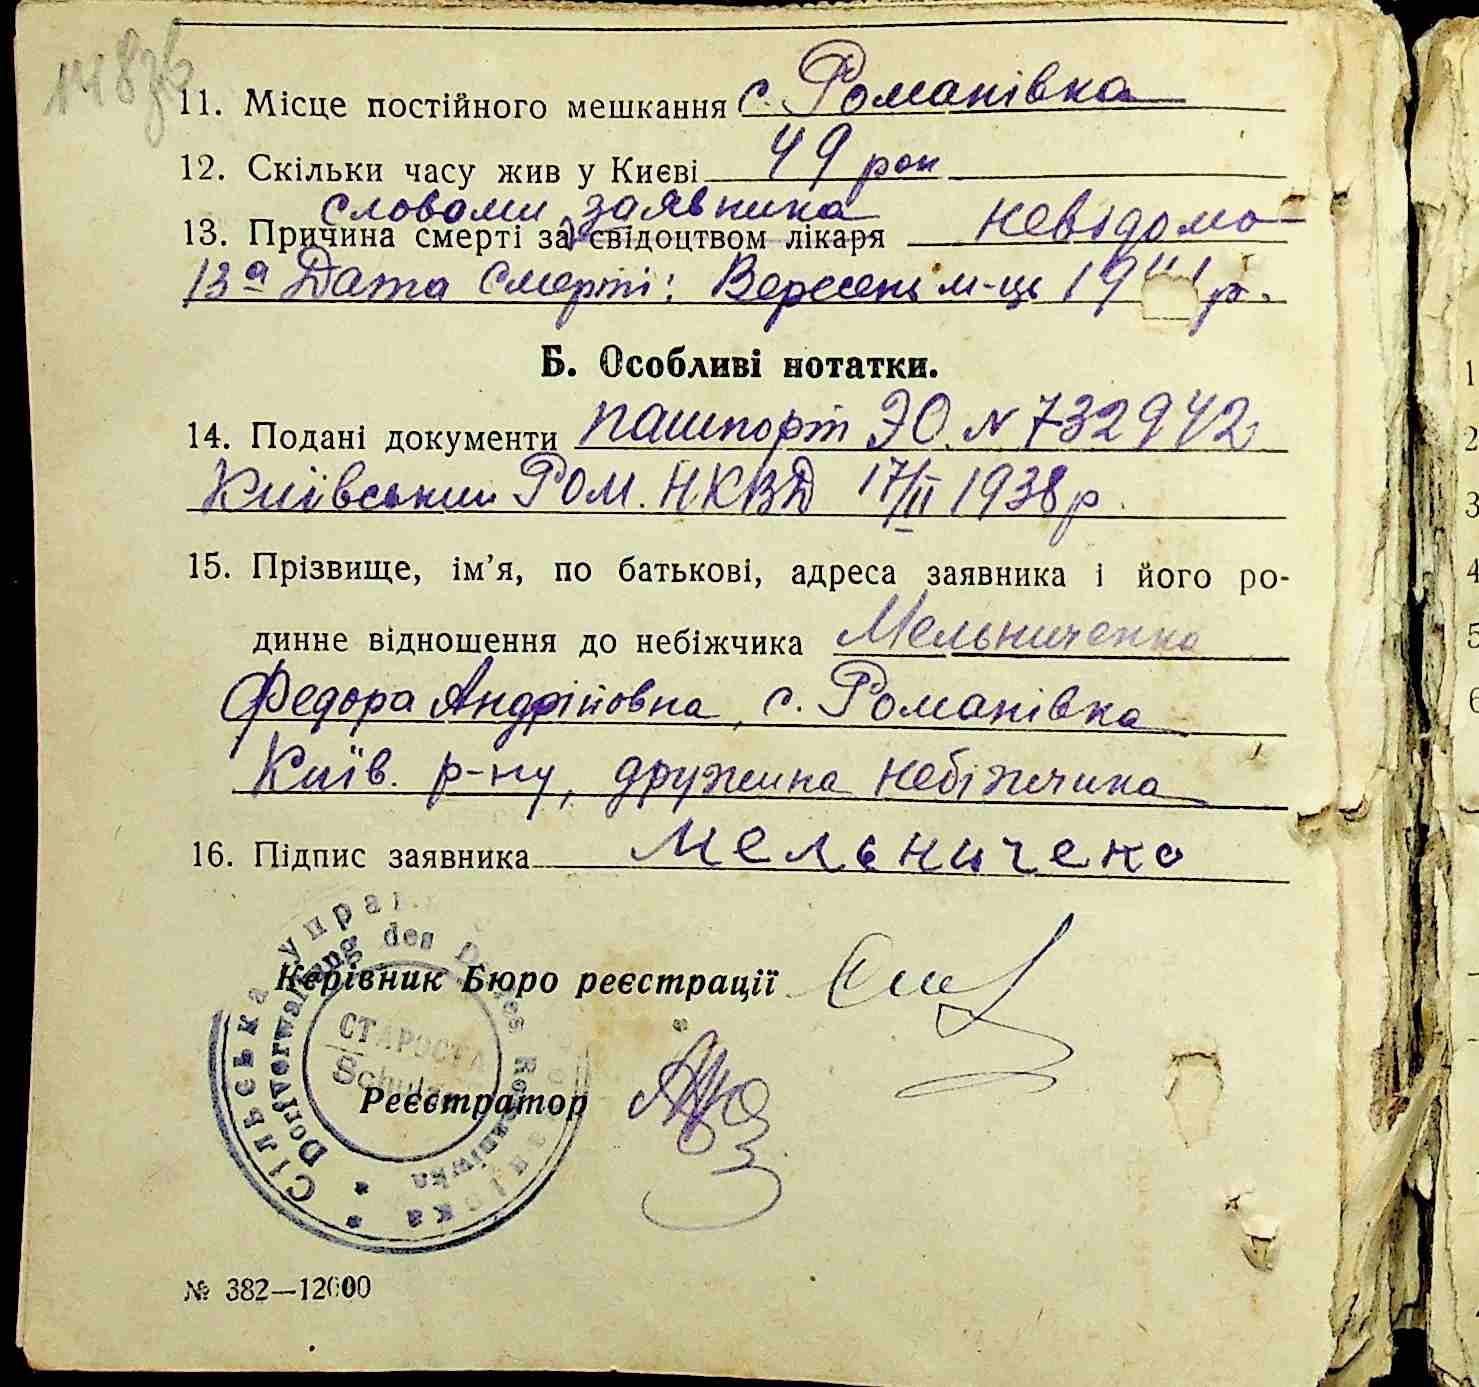 148зв
11. Місце постійного мешкання с. Романівка
12. Скільки часу жив у Києві 49 рок
словами заявника
13. Причина смерті за свідоцтвом лікаря невідомо
13а Дата смерті: Вересень м-ць 1941 р.
Б. Особливі нотатки.
14. Подані документи пашпорт ЭО. N 732942
Київський РОМ. НКВД 17/II 1938 р.
15. Прізвище, ім’я, по батькові, адреса заявника і його ро-
динне відношення до небіжчика Мельниченко
Федора Андріївна, с. Романівка
Київ. р-ну, дружина небіжчика
16. Підпис заявника Мельничеко
Керівник Бюро реєстрації
Реєстратор
Сільська управа Романівка
Dorfverwaltung des Dorfes Romaniwka
СТАРОСТА
Schulze
№ 382—12000